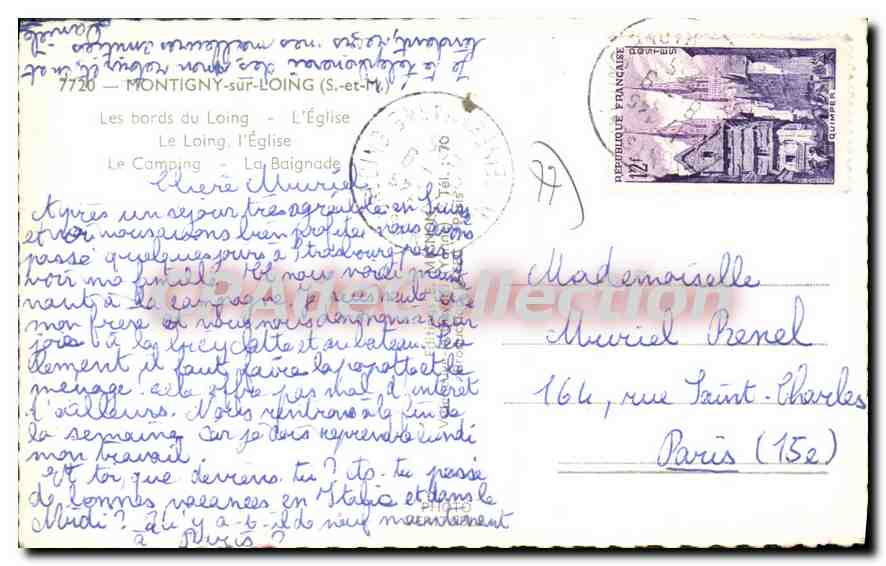 7720 — MONTIGNY-sur-LOING (S.-et-M.)
Les bords du Loing - L'Église
Le Loing, l'Église
Le Camping - La Baignade
Chère Muriel,
Après un séjour très agréable en
et où nous avons bien profité nous avons
passé quelques jours à Strasbourg pour
voir ma famille. Et nous voici mainte
nant à la campagne. Je suis seule avec
mon frère et nous nous
à la bicyclette et au bateau. Seu
lement il faut faire la popotte et le
ménage, cela offre pas mal d'intérêt
d'ailleurs. Nous rentrons à la fin de
la semaine car je dois reprendre lundi
mon travail.
Et toi, que deviens-tu? As-tu passé
de bonnes vacances en Italie et dans le
Midi? Qu'y a-t-il de neuf maintenant
à Paris?
Je te téléphonerai dès mon retour et, en at
tendant, reçois mes meilleures amitiés
Danièle
Mademoiselle
Muriel Renel
164, rue Saint-Charles
Paris (15e)
RÉPUBLIQUE FRANÇAISE
POSTES
12f
QUIMPER
PHOTO
CPArte Collection